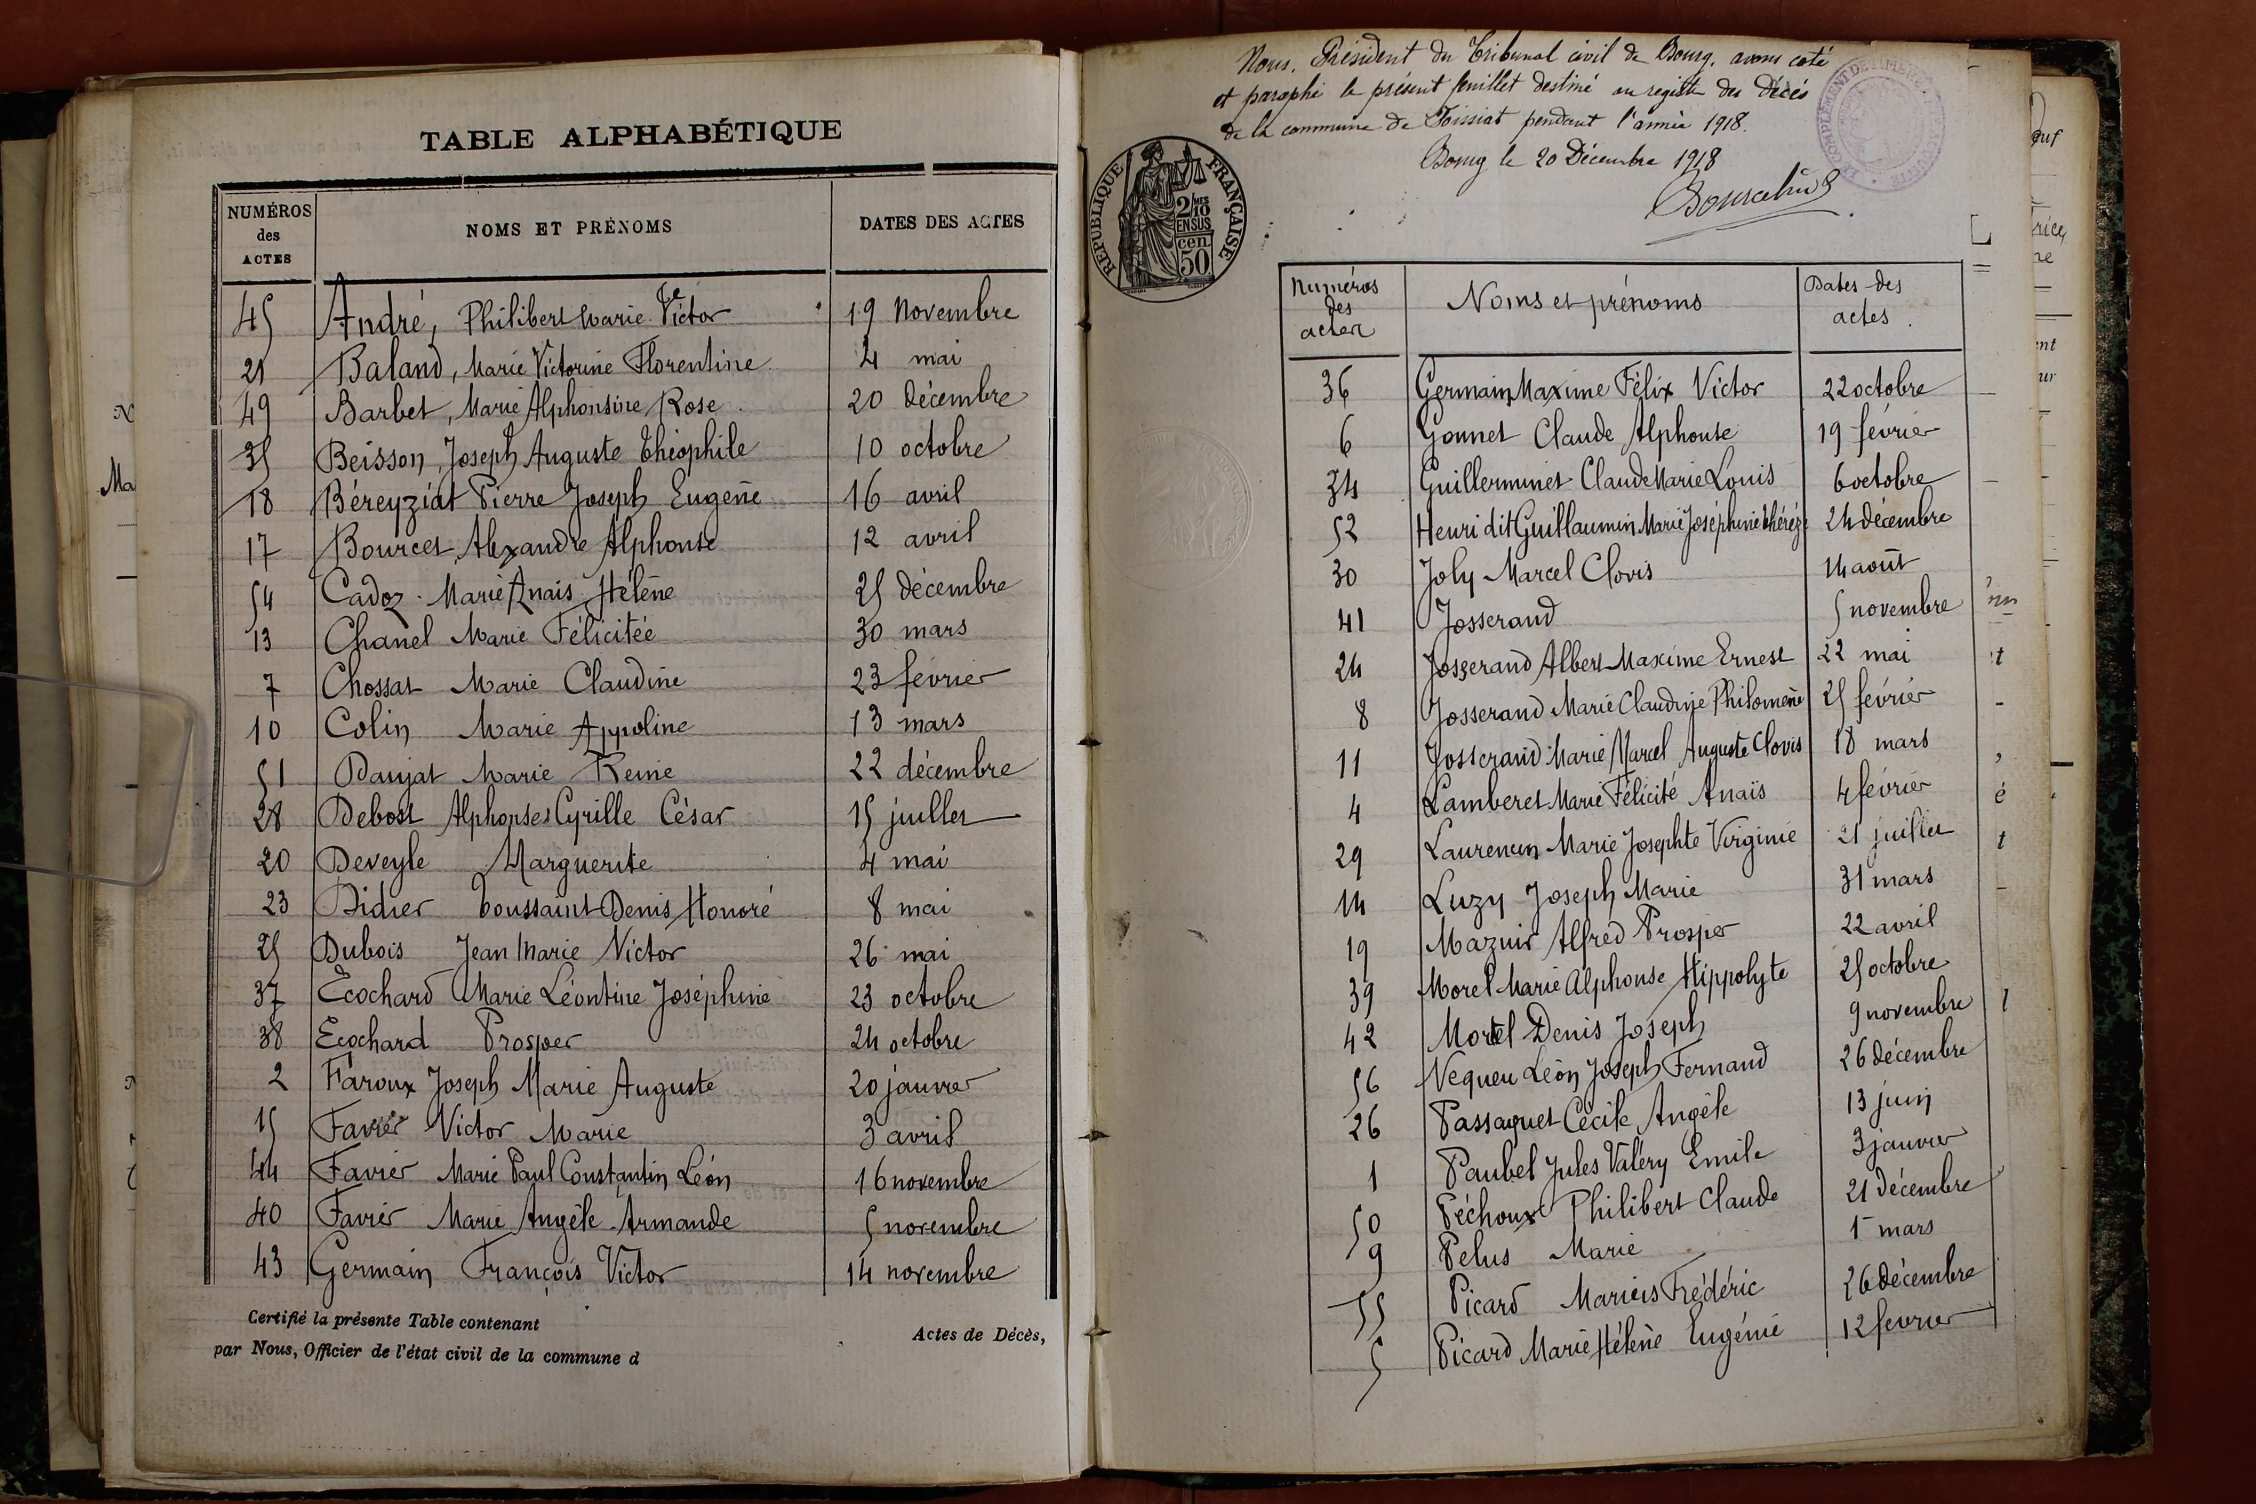 TABLE ALPHABÉTIQUE
NUMÉROS des ACTES NOMS ET PRÉNOMS DATES DES ACTES
45 André, Philibert Marie Victor 19 Novembre
21 Baland, Marie Victorine Florentine 4 mai
49 Barbet, Marie Alphonsine Rose 20 décembre
35 Beisson, Joseph Auguste Théophile 10 octobre
18 Béreyziat Pierre Joseph Eugène 16 avril
17 Bourcet, Alexandre Alphonse 12 avril
54 Cadoz Marie Anaïs Hélène 25 décembre
13 Chanel Marie Félicitée 30 mars
7 Chossat Marie Claudine 23 février
10 Colin Marie Appoline 13 mars
51 Daujat Marie Reine 22 décembre
28 Debost Alphonse Cyrille César 15 juillet
20 Deveyle Marguerite 4 mai
23 Didier Toussaint Denis Honoré 8 mai
25 Dubois Jean Marie Victor 26 mai
37 Ecochard Marie Léontine Joséphine 23 octobre
38 Ecochard Prosper 24 octobre
2 Faroux Joseph Marie Auguste 20 janvier
15 Favier Victor Marie 3 avril
44 Favier Marie Paul Constantin Léon 16 novembre
40 Favier Marie Angèle Armande 5 novembre
43 Germain François Victor 14 novembre
Certifié la présente Table contenant Actes de Décès,
par Nous, Officier de l'état civil de la commune d
Nous, Président du Tribunal civil de Bourg, avons coté
et paraphé le présent feuillet destiné au registre des décès
de la commune de Foissiat pendant l'année 1918.
Bourg le 20 Décembre 1918
RÉPUBLIQUE FRANÇAISE
2/10 MES
EN SUS
cen.
50
Numéros des actes Noms et prénoms Dates des actes
36 Germain Maxime Félix Victor 22 octobre
6 Gonnet Claude Alphonse 19 février
34 Guillerminet Claude Marie Louis 6 octobre
52 Henri dit Guillaumin Marie Joséphine Thérèze 24 décembre
30 Joly Marcel Clovis 14 août
41 Josserand 5 novembre
24 Josserand Albert Maxime Ernest 22 mai
8 Josserand Marie Claudine Philomène 25 février
11 Josserand Marie Marcel Auguste Clovis 18 mars
4 Lamberet Marie Félicité Anaïs 4 février
29 Laurencin Marie Josephte Virginie 21 juillet
14 Luzy Joseph Marie 31 mars
19 Mazuir Alfred Prosper 22 avril
39 Morel Marie Alphonse Hippolyte 25 octobre
42 Morel Denis Joseph 9 novembre
56 Nequeu Léon Joseph Fernand 26 décembre
26 Passaquet Cécile Angèle 13 juin
1 Paubel Jules Valéry Emile 3 janvier
50 Péchoux Philibert Claude 21 décembre
9 Pelus Marie 1 mars
55 Picard Marius Frédéric 26 décembre
5 Picard Marie Hélène Eugénie 12 février